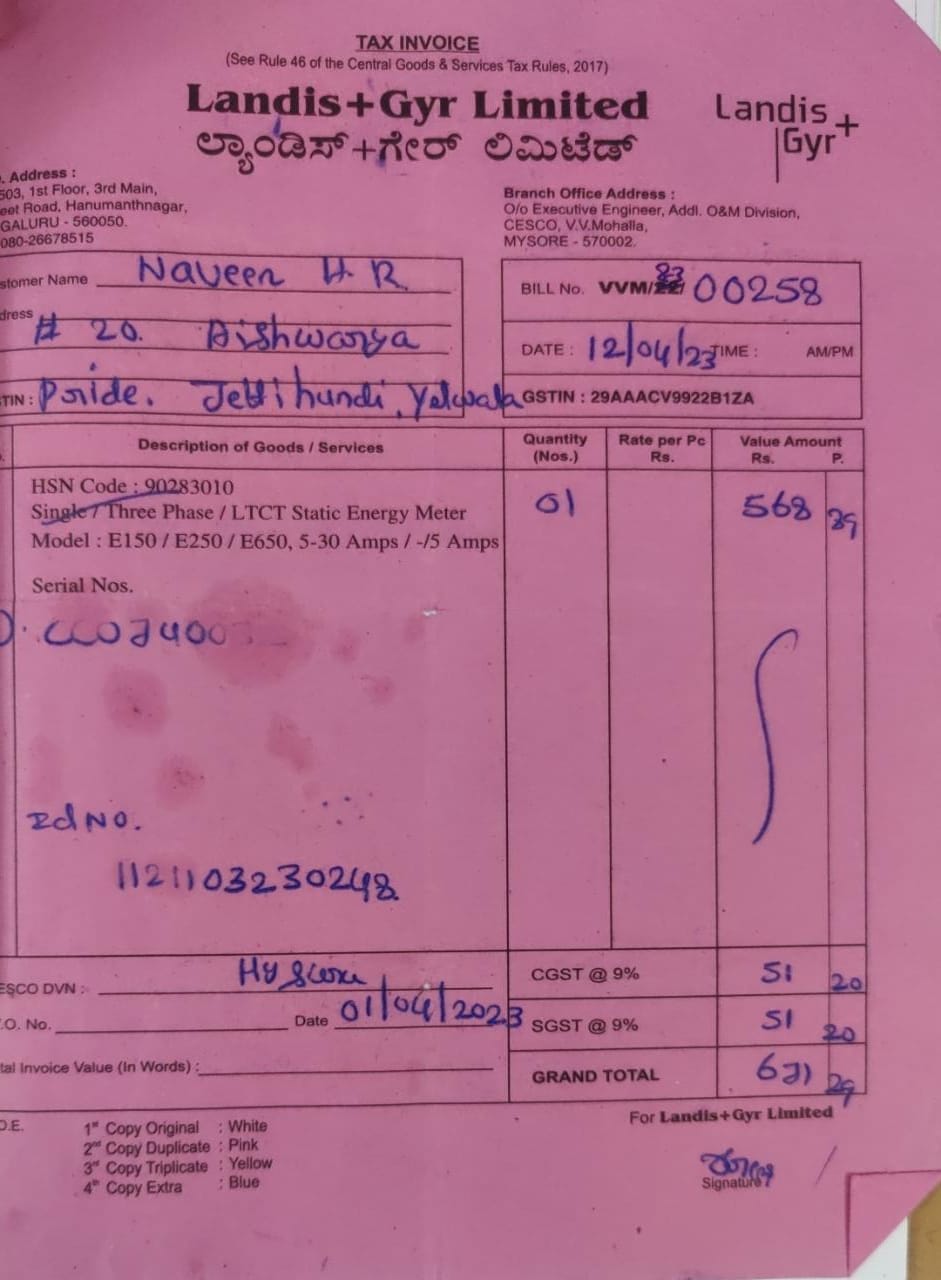 TAX INVOICE
(See Rule 46 of the Central Goods & Services Tax Rules, 2017)
Landis+Gyr Limited
Landis+
Gyr
ಲ್ಯಾಂಡಿಸ್+ಗೇರ್ ಲಿಮಿಟೆಡ್
. Address :
503, 1st Floor, 3rd Main,
eet Road, Hanumanthnagar,
GALURU - 560050.
080-26678515
Branch Office Address :
O/o Executive Engineer, Addl. O&M Division,
CESCO, V.V.Mohalla,
MYSORE - 570002.
stomer Name Naveen H R
BILL No. VVM/23/ 00258
dress # 20. Aishwarya
DATE : 12/04/23 TIME : AM/PM
TIN : Pride. Jettihundi, Yelwala
GSTIN : 29AAACV9922B1ZA
Description of Goods / Services Quantity (Nos.) Rate per Pc Rs. Value Amount Rs. P.
HSN Code : 90283010
Single / Three Phase / LTCT Static Energy Meter 01 568 89
Model : E150 / E250 / E650, 5-30 Amps / -/5 Amps
Serial Nos.
Id No.
1121103230248
ESCO DVN :
.O. No. Date 01/04/2023
tal Invoice Value (In Words) :
CGST @ 9% 51 20
SGST @ 9% 51 20
GRAND TOTAL 671 29
O.E. 1st Copy Original : White
2nd Copy Duplicate : Pink
3rd Copy Triplicate : Yellow
4th Copy Extra : Blue
For Landis+Gyr Limited
Signature